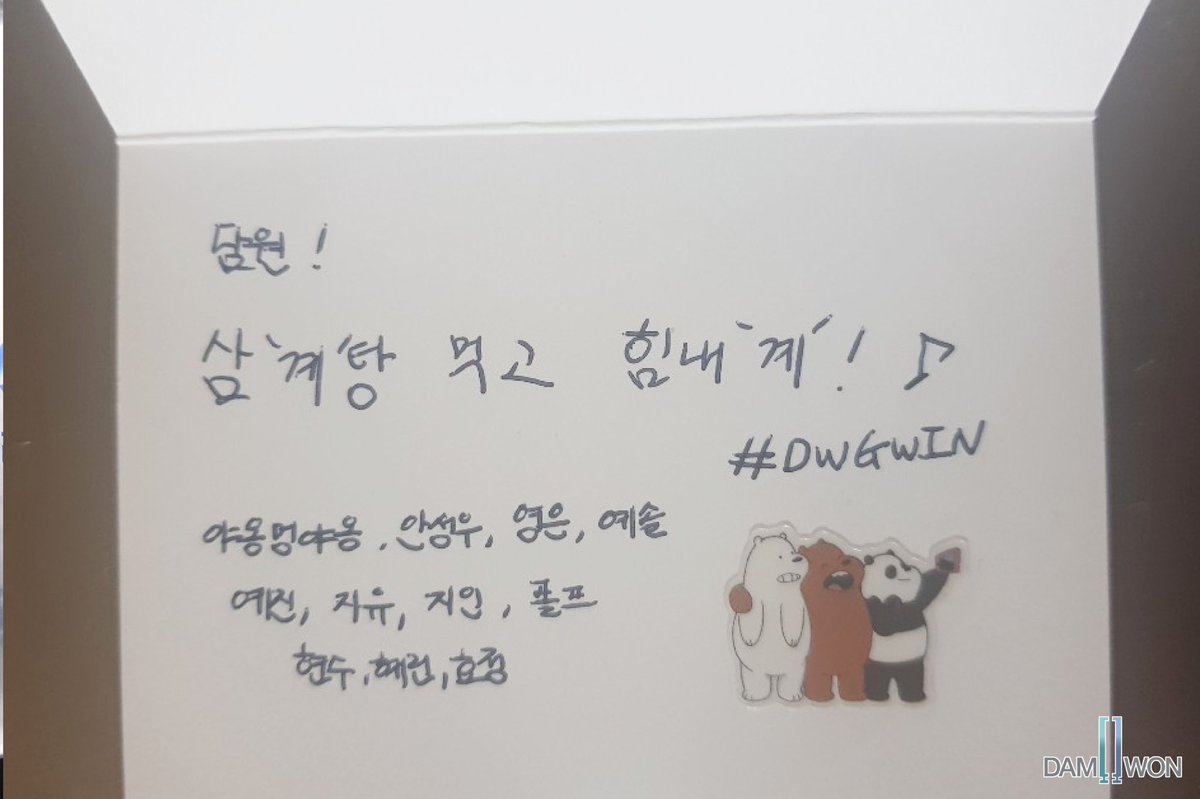 담원!
삼'계'탕 먹고 힘내'계'! ♪
#DWGWIN
야옹멍야옹, 안성우, 영은, 예솔
예진, 지유, 지인, 폴프
현수, 혜린, 효정
DAMWON